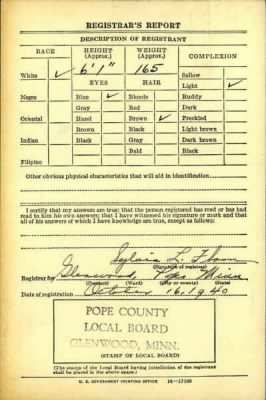 REGISTRAR'S REPORT
DESCRIPTION OF REGISTRANT
RACE HEIGHT (Approx.) WEIGHT (Approx.) COMPLEXION
White ✓ 6' 1" 165 Sallow
EYES HAIR Light ✓
Negro Blue ✓ Blonde Ruddy
Gray Red Dark
Oriental Hazel Brown ✓ Freckled
Brown Black Light brown
Indian Black Gray Dark brown
Bald Black
Filipino
Other obvious physical characteristics that will aid in identification
I certify that my answers are true; that the person registered has read or has had
read to him his own answers; that I have witnessed his signature or mark and that
all of his answers of which I have knowledge are true, except as follows:
L.
(Signature of registrar)
Registrar for Glenwood Pope Minn
(Precinct) (Ward) (City or county) (State)
Date of registration October 16, 1940
POPE COUNTY
LOCAL BOARD
GLENWOOD, MINN.
(STAMP OF LOCAL BOARD)
(The stamp of the Local Board having jurisdiction of the registrant
shall be placed in the above space.)
U. S. GOVERNMENT PRINTING OFFICE 16—17100